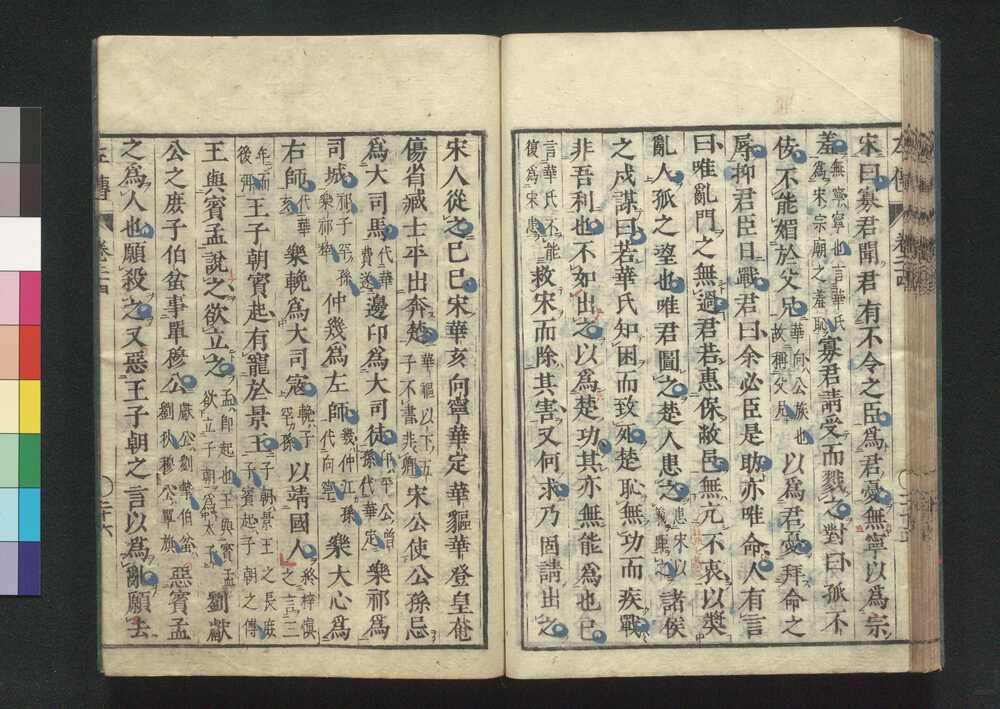 宋曰寡君聞君有不令之臣爲君憂無寧以爲宗
羞無寧寧也言華氏爲宋宗廟之羞恥寡君請受而戮之對曰孤不
佞不能媚於父兄華向公族也故稱父兄以爲君憂拜命之
辱抑君臣日戰君曰余必臣是助亦唯命人有言
曰唯亂門之無過君若惠保敝邑無亢不衷以奬
亂人孤之望也唯君圖之楚人患之患宋以義距之諸侯
之戍謀曰若華氏知困而致死楚恥無功而疾戰
非吾利也不如出之以爲楚功其亦無能爲也已
言華氏不能復爲宋患救宋而除其害又何求乃固請出之
宋人從之己巳宋華亥向寧華定華貙華登皇奄
傷省臧士平出奔楚華貙以下五子不書非卿宋公使公孫忌
爲大司馬代華費遂邊卬爲大司徒卬平公曾孫代華定樂祁爲
司城祁子罕孫樂祁犂仲幾爲左師幾仲江孫代向寧樂大心爲
右師代華亥樂輓爲大司寇輓子罕孫以靖國人終梓愼之言三
年而後弭王子朝賓起有寵於景王子朝景王之長庶子賓起子朝之傅
王與賓孟說之欲立之孟卽起也王與賓孟欲立子朝爲太子劉獻
公之庶子伯蚠事單穆公獻公劉摯伯蚠劉狄穆公單旗惡賓孟
之爲人也願殺之又惡王子朝之言以爲亂願去
左傳
卷二十四
○二十六